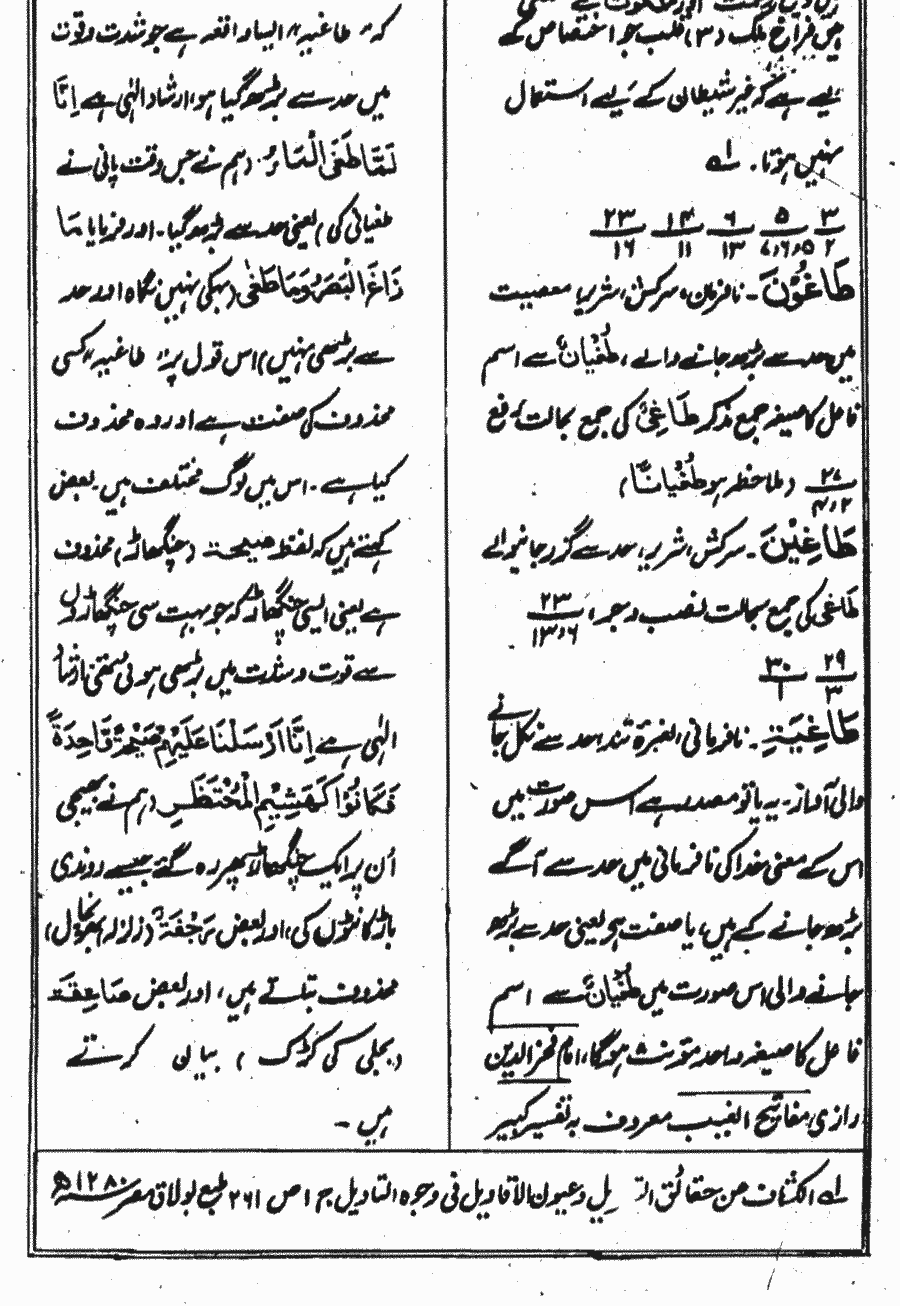 میں فراخ ملک (۳) قلب جو اختصاص کے
لیے ہے مگر غیر شیطان کے لیے استعمال
نہیں ہوتا. لہ
۳/۲ ۵/۵،۶،۷ ۶/۱۳ ۱۴/۱۱ ۲۳/۱۶
طَاغُوْنَ۔ نافرمان، سرکش، شریر، معصیت
میں حد سے بڑھ جانے والے، طُغْیَانٌ سے اسم
فاعل کا صیغہ جمع مذکر طَاغِیٌ کی جمع بحالت رفع
۲۷/۲،۴ (ملاحظہ ہو طُغْیَانًا)
طَاغِیْنَ۔ سرکش، شریر، حد سے گزر جانیوالے
طاغی کی جمع بحالت نصب و جر، ۲۳/۱۳،۶
۲۹/۳ ۳۰/۱
طَاغِیَۃِ۔ نافرمانی، نعرۂ تند، حد سے نکل جانے
والی آواز۔ یہ یا تو مصدر ہے اس صورت میں
اس کے معنی خدا کی نافرمانی میں حد سے آگے
بڑھ جانے کے ہیں، یا صفت ہے یعنی حد سے بڑھ
جانے والی اس صورت میں طُغْیَانٌ سے اسم
فاعل کا صیغہ واحد مؤنث ہوگا، امام فخر الدین
رازی مفاتیح الغیب معروف بہ تفسیر کبیر
کہ "طاغیہ" ایسا واقعہ ہے جو شدت و قوت
میں حد سے بڑھ گیا ہو، ارشاد الٰہی ہے اِنَّا
لَمَّا طَغَی الْمَاءُ، (ہم نے جس وقت پانی نے
طغیانی کی) یعنی حد سے بڑھ گیا۔ اور فرمایا مَا
زَاغَ الْبَصَرُ وَمَا طَغٰی (بہکی نہیں نگاہ اور حد
سے بڑھی نہیں) اس قول پر "طاغیہ" کسی
محذوف کی صفت ہے اور وہ محذوف
کیا ہے۔ اس میں لوگ مختلف ہیں۔ بعض
کہتے ہیں کہ لفظ صیحۃ (چنگھاڑ) محذوف
ہے یعنی ایسی چنگھاڑ کہ جو بہت سی چنگھاڑوں
سے قوت و شدت میں بڑھی ہوئی تھی، ارشاد
الٰہی ہے اِنَّا اَرْسَلْنَا عَلَیْہِمْ صَیْحَۃً وَّاحِدَۃً
فَکَانُوْا کَہَشِیْمِ الْمُحْتَظِرِ (ہم نے بھیجی
اُن پر ایک چنگھاڑ پھر رہ گئے جیسے روندی
باڑ کانٹوں کی)، اور بعض رَجْفَۃ (زلزلہ، بھونچال)
محذوف بتلاتے ہیں، اور بعض صَاعِقَۃ
(بجلی کی کڑک) بیان کرتے
ہیں۔
لہ الکشاف عن حقائق وعیون الاقاویل فی وجوہ التاویل ج ۱ ص ۲۶۱ طبع بولاق مصر سنہ ۱۲۸۰ھ